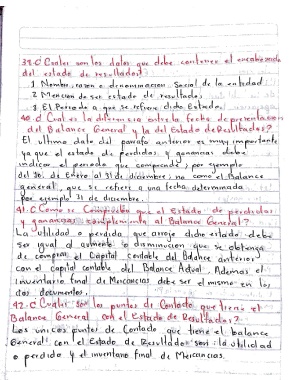 39.-¿Cuales son los datos que debe contener el encabezado
del estado de resultados?
1 Nombre, razon o denominacion Social de la entidad.
2 Mencion de ser estado de resultados.
3 El Periodo a que se refiere dicho Estado.
40.-¿Cual es la diferencia entre la fecha de presentacion
del Balance General y la del Estado de Resultados?
El ultimo dato del parrafo anterior es muy importante
ya que el estado de perdidas y ganancias debe
indicar el periodo que comprende, por ejemplo
del 1o. de Enero al 31 de diciembre; no como el Balance
general, que se refiere a una fecha determinada
por ejemplo 31 de diciembre.
41.-¿Como se Comprueba que el Estado de perdidas
y ganancias complementa al Balance General?
La utilidad o perdida que arroje dicho estado debe
ser igual al aumento o disminucion que se obtenga
de comparar el Capital contable del Balance anterior
con el capital contable del Balance Actual. Ademas el
inventario final de Mercancias debe ser el mismo en los
dos documentos.
42.-¿Cuales son los puntos de Contacto que tiene el
Balance General con el Estado de Resultados?
Los unicos puntos de Contacto que tiene el balance
General con el Estado de Resultados son: la utilidad
o perdida y el inventario final de Mercancias.